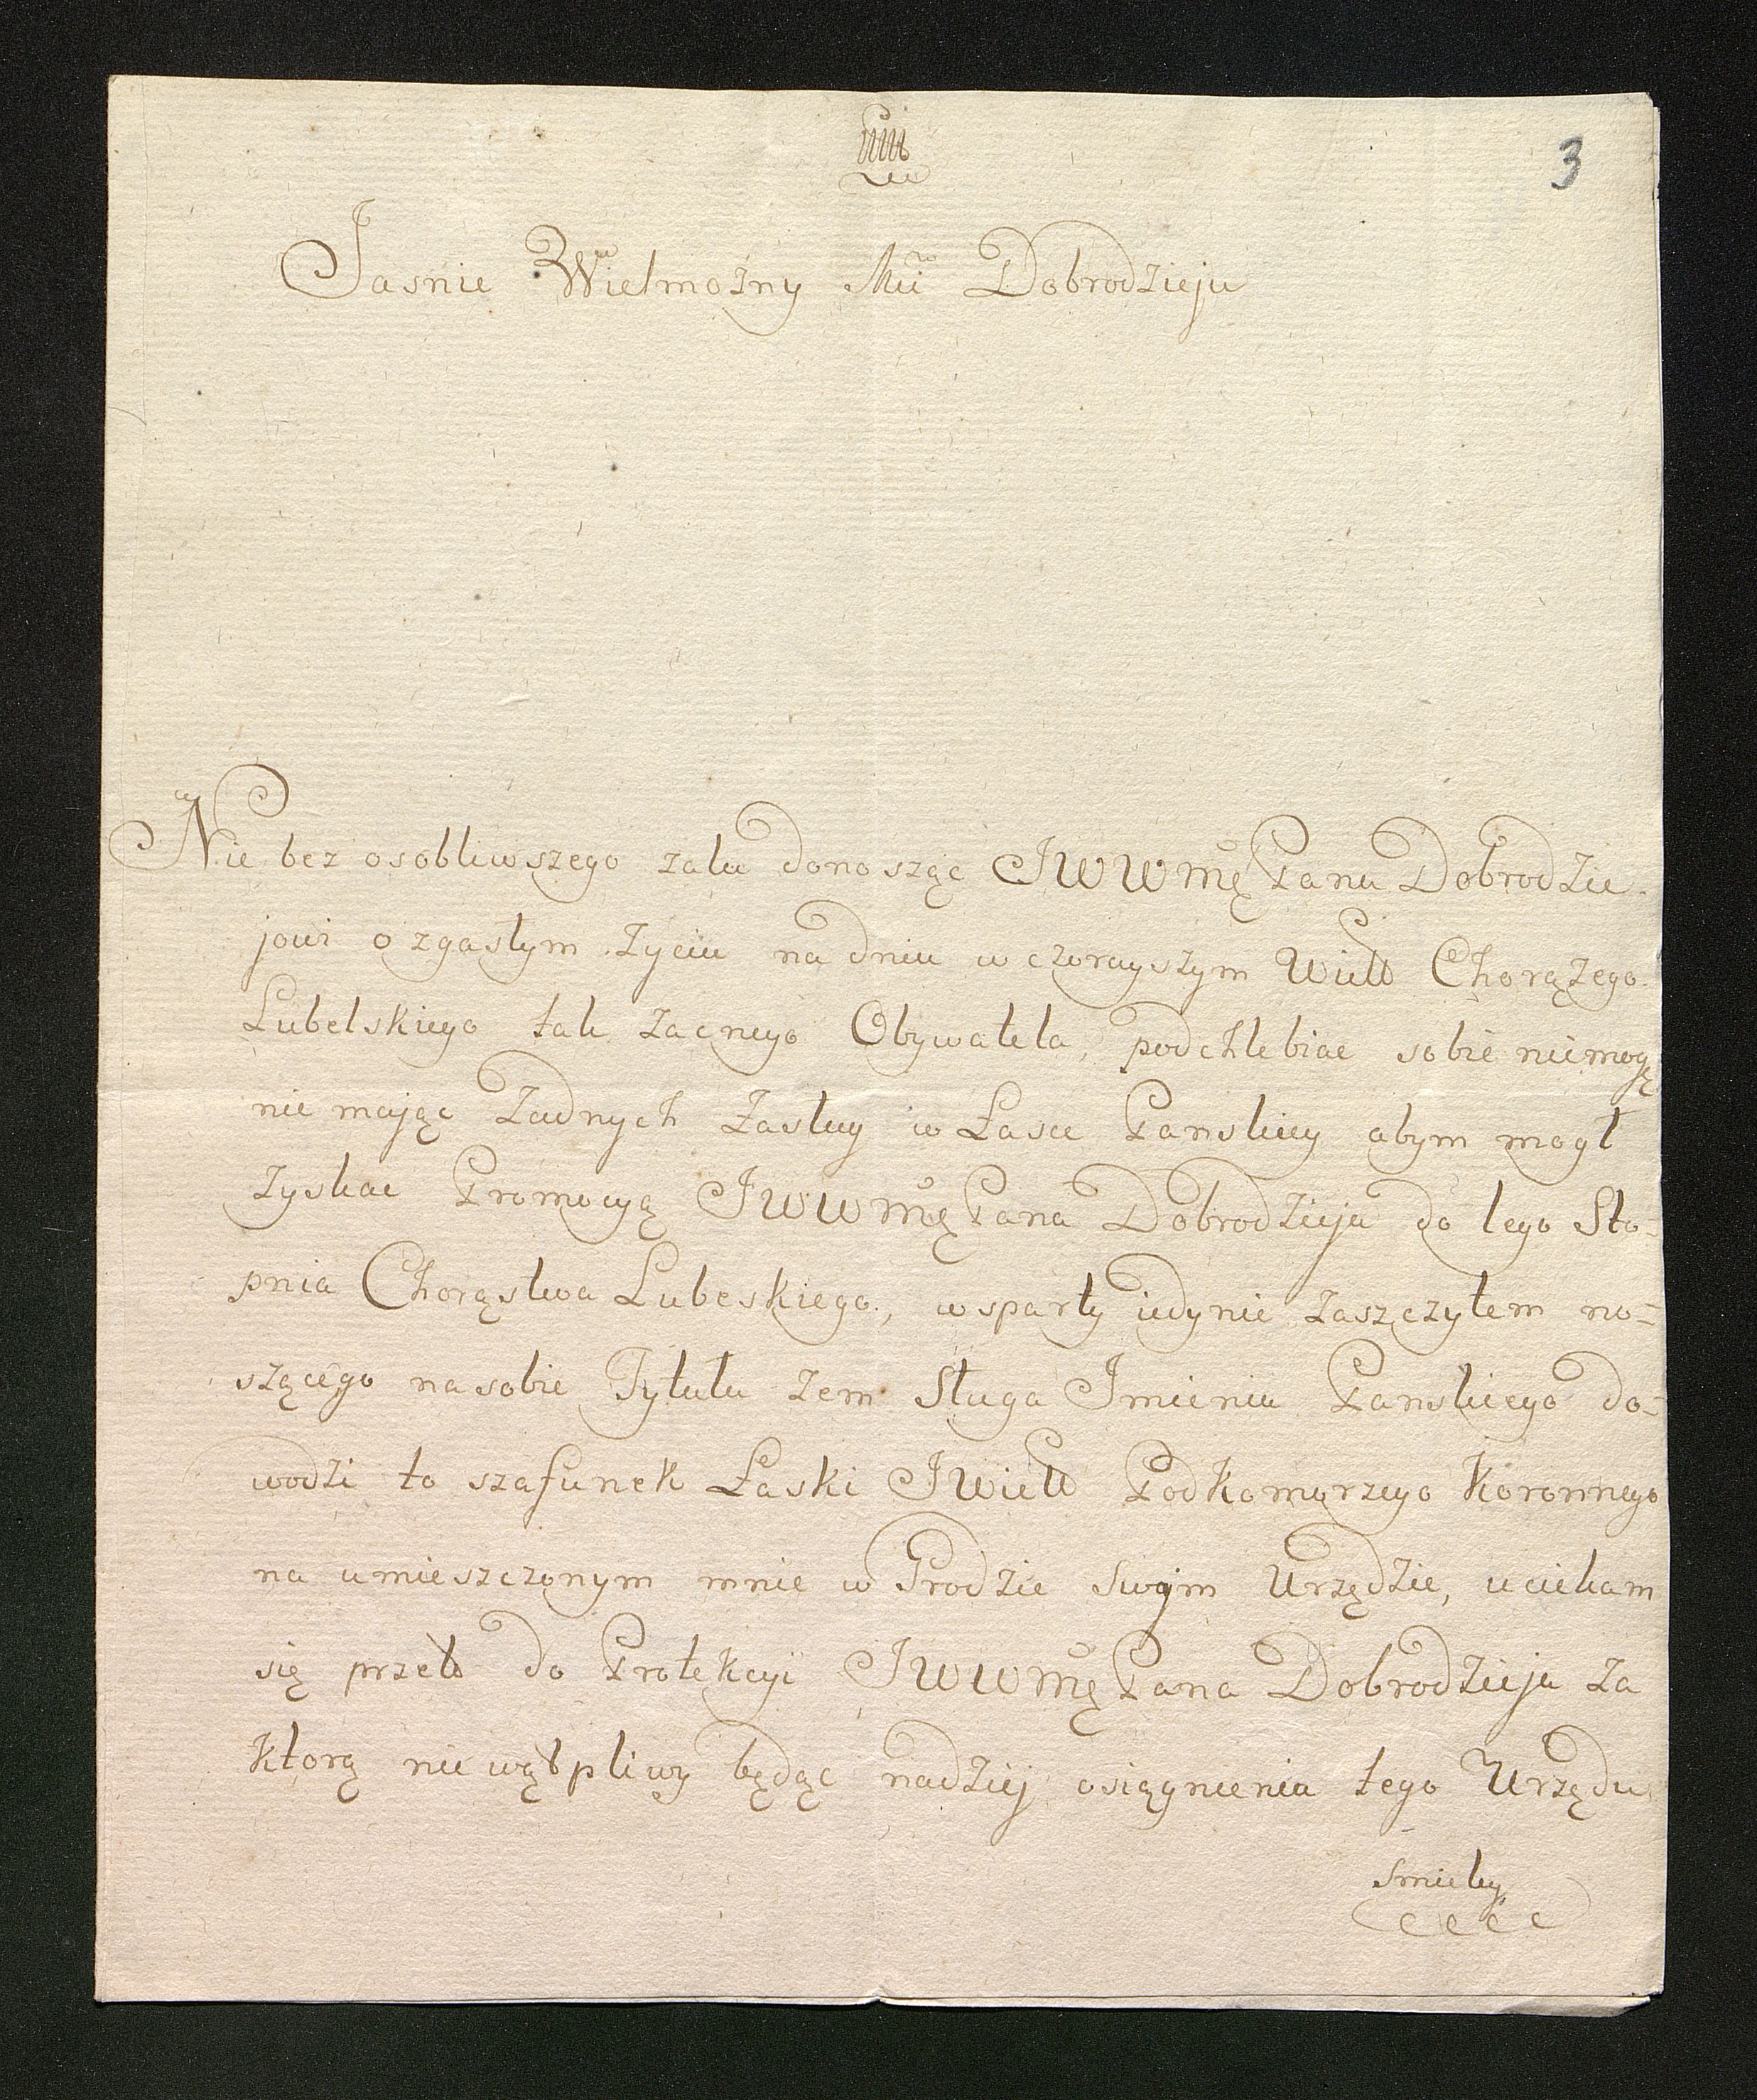 3
Jasnie Wielmozny Mci Dobrodzieju
Nie bez osobliwszego zalu donosząc JWWmę Panu Dobrodzie-
jowi o zgasłym życiu na dniu wczorayszym Wielo Chorążego
Lubelskiego tak zacnego Obywatela, podchlebiac sobie niemogę
nie mając żadnych zasług w Łasce Panskiey abym mogł
zyskac Promocyą JWWmę Pana Dobrodzieja do tego Sto-
pnia Chorąstwa Lubeskiego, wsparty iedynie zaszczytem no-
szącego na sobie Tytułu zem Sługa Imieniu Panskiego do-
wodzi to szafunek Łaski JWielo Podkomorzego Koronnego
na umieszczonym mnie w Grodzie Swoim Urzędzie, uciekam
się przeto do Protekcyi JWWmę Pana Dobrodzieja za
ktorą niewątpliwy będąc nadziej osiągnienia tego Urzędu
Smiely